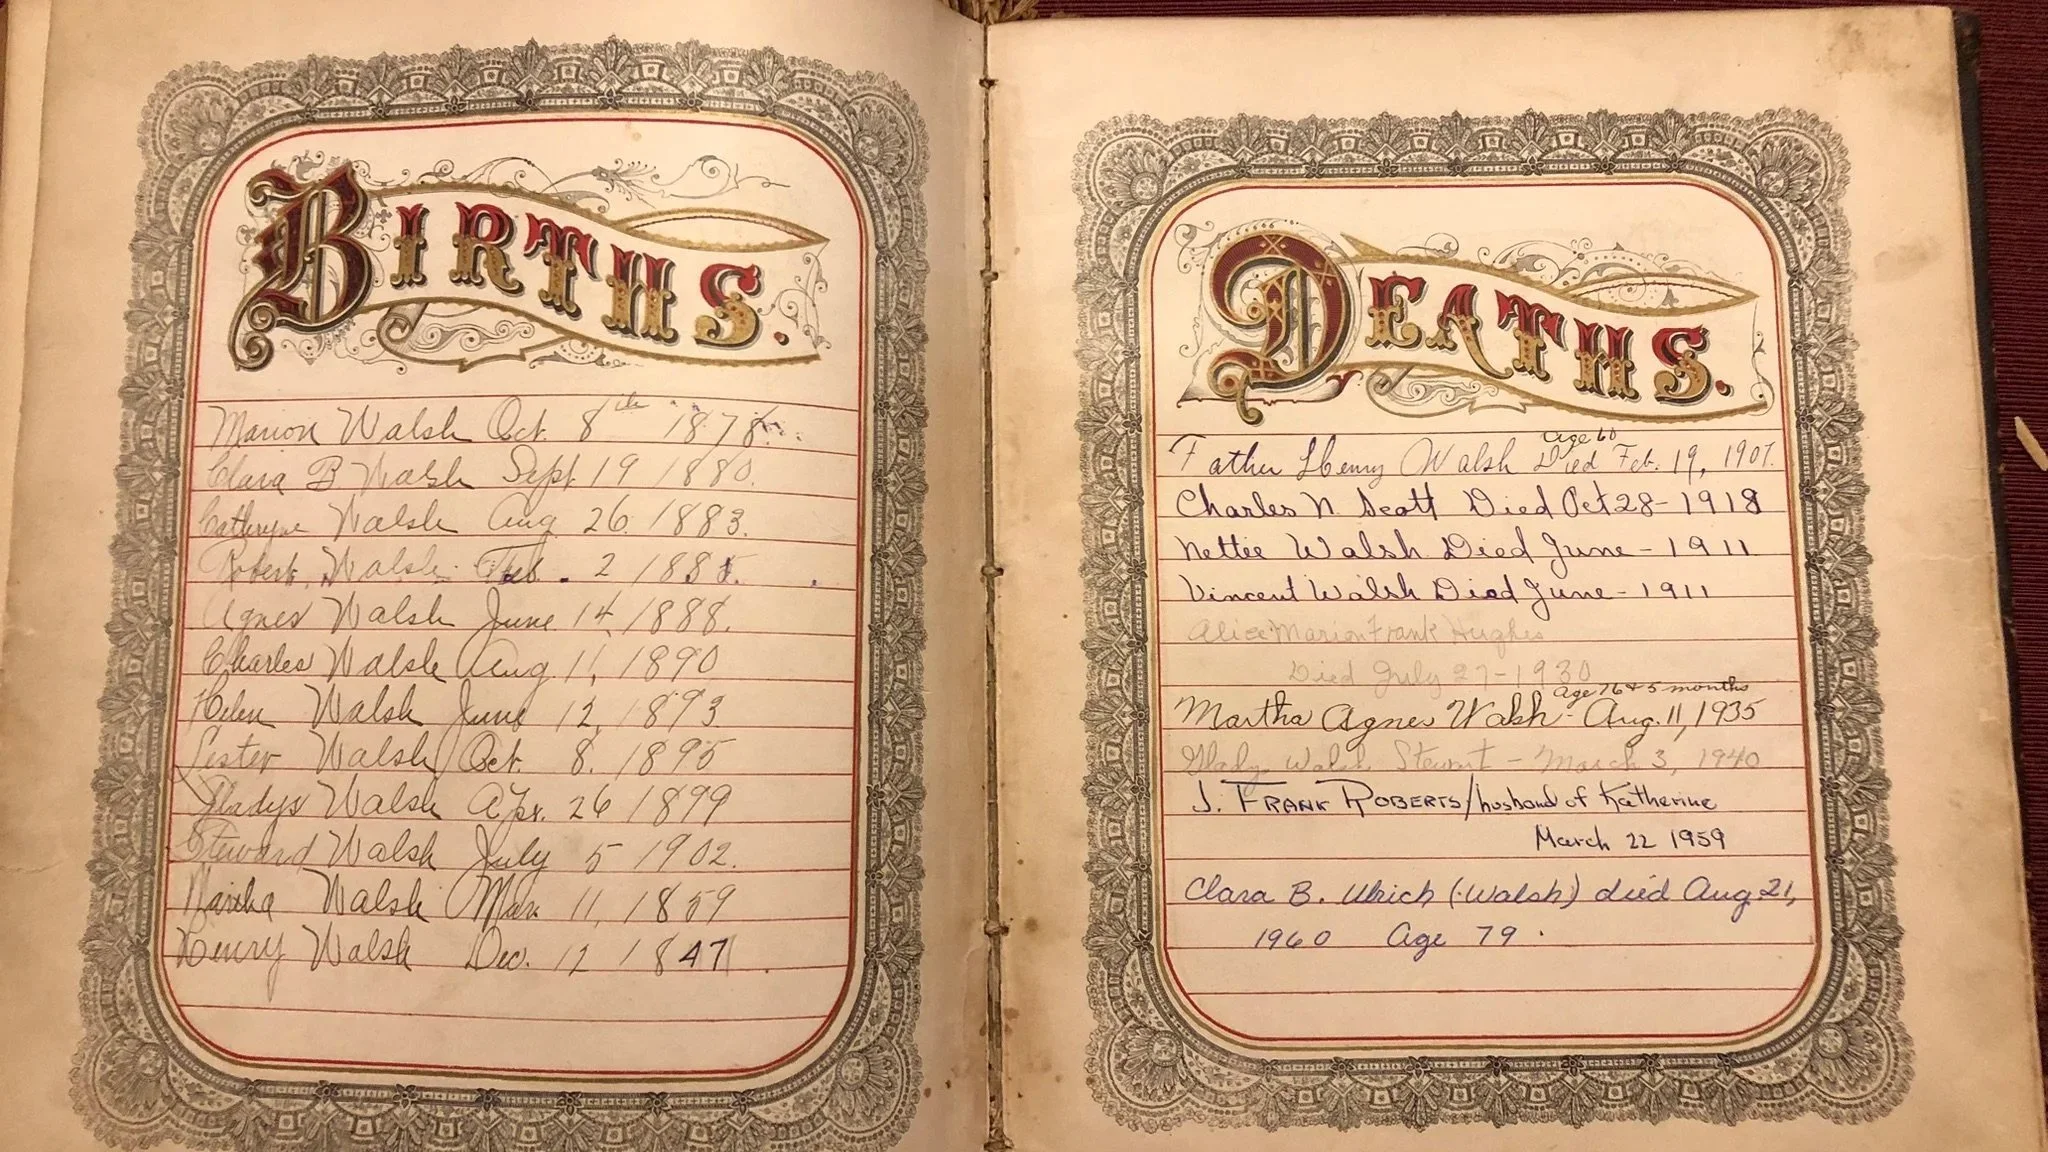 BIRTHS.
Marion Walsh Oct. 8th 1878.
Clara B Walsh Sept 19 1880.
Catheryne Walsh Aug 26 1883.
Robert Walsh Feb. 2 1885.
Agnes Walsh June 14, 1888.
Charles Walsh Aug 11, 1890
Helen Walsh June 12, 1893
Lester Walsh Oct. 8. 1895
Gladys Walsh Apr. 26 1899
Steward Walsh July 5 1902.
Martha Walsh Mar. 11, 1859
Henry Walsh Dec. 12 1847
DEATHS.
age 60
Father Henry Walsh Died Feb. 19, 1907.
Charles N. Scott Died Oct 28-1918
Nettie Walsh Died June-1911
Vincent Walsh Died June-1911
Alice Marion Frank Hughes
Died July 27-1930
age 76 & 5 months
Martha Agnes Walsh - Aug. 11, 1935
Gladys Walsh Stewart - March 3, 1940
J. FRANK ROBERTS/husband of Katherine
March 22 1959
Clara B. Ulrich (Walsh) died Aug 21,
1960 Age 79.